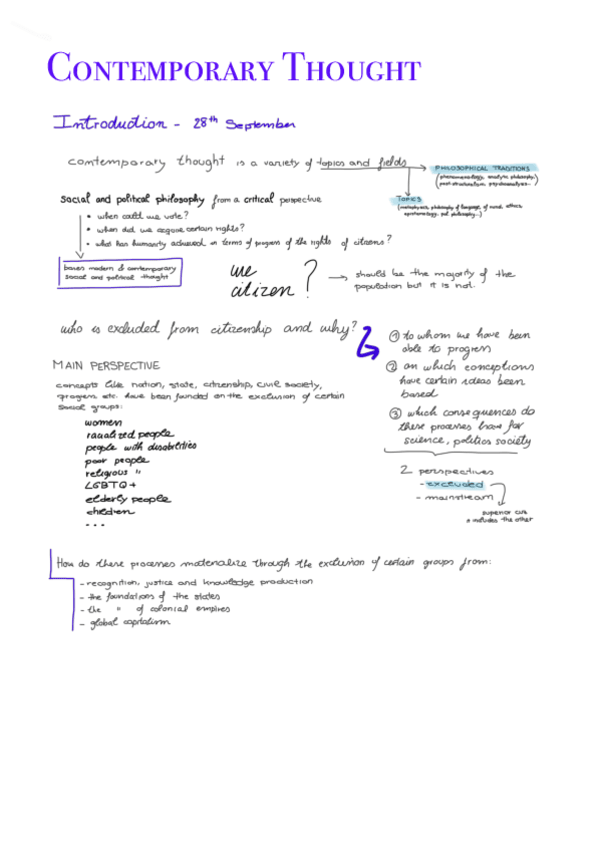 CONTEMPORARY THOUGHT
Introduction - 28th September
comtemporary thought is a variety of topics and fields
PHILOSOPHICAL TRADITIONS
(phenomenology, analytic philosophy,
post-structuralism, psychoanalysis...)
TOPICS
(metaphysics, philosophy of language, of mind, ethics
epistemology, pol. philosophy...)
social and political philosophy from a critical perspective
• when could we vote?
• when did we acquire certain rights?
• what has humanity achieved in terms of progress of the rights of citizens?
bases modern & contemporary
social and political thought
we
citizen ?
should be the majority of the
population but it is not.
who is excluded from citizenship and why?
① to whom we have been
able to progress
② on which conceptions
have certain ideas been
based
③ which consequences do
these processes have for
science, politics society
MAIN PERSPECTIVE
concepts like nation, state, citizenship, civil society,
progress etc. have been founded on the exclusion of certain
social groups:
women
racialized people
people with disabilities
poor people
religious "
LGBTQ+
elderly people
children
...
2 perspectives
- excluded
- mainstream
superior one
includes the other
How do these processes materialize through the exclusion of certain groups from:
- recognition, justice and knowledge production
- the foundations of the states
- the " of colonial empires
- global capitalism